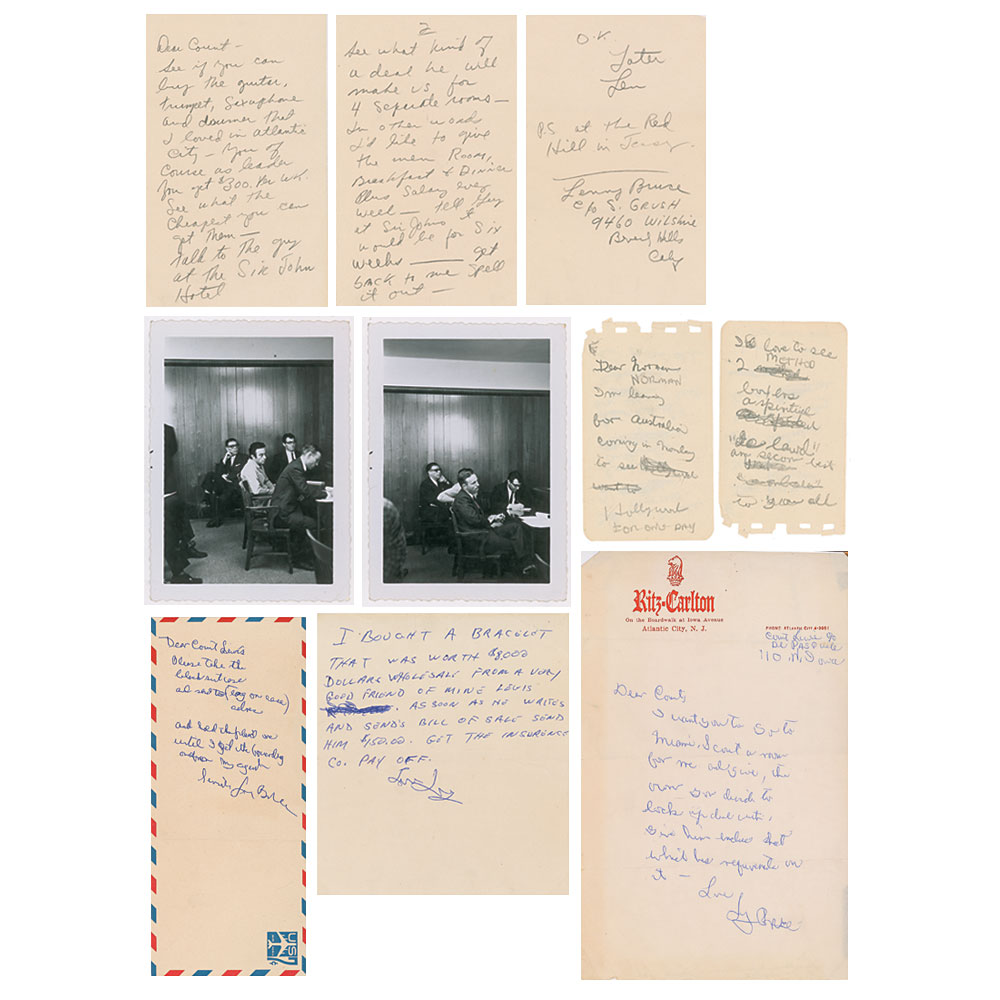 Dear Count –
See if you can
buy the guitar,
trumpet, Saxaphone
and doumer that
I loved in atlantic
City – you of
Course as leader
you get $300. Per WK.
See what the
Cheapest you can
get them —
talk to the guy
at the Sir John
Hotel
2
See what kind of
a deal he will
make us, for
4 Separate rooms —
In other words
I'd like to give
the men Room,
Breakfast & Dinner
Plus Salary every
week — tell Guy
at Sir Johns it
would be for Six
weeks —— get
back to me Spell
it out —
O.K.
Later
Len
P.S at the Red
Hill in Jersey.
Lenny Bruce
c/o S. GRUSH
9460 WILSHIRE
Beverly Hills
Calif
Dear Norman
NORMAN
I'm leaving
for Australia
coming in Monday
to see
Hollywood
FOR ONE DAY
love to see
METHOD
2
boxers
"de lawd"
am second best
to you all
Dear Count Lewis
Please take the
and hold the
until I get the
my agent
I BOUGHT A BRACELET
THAT WAS WORTH $8,000
DOLLARS WHOLESALE FROM A VERY
GOOD FRIEND OF MINE LEWIS
AS SOON AS HE WRITES
AND SEND'S BILL OF SALE SEND
HIM $150.00. GET THE INSURENSE
CO. PAY OFF.
Love
USA
Ritz-Carlton
On the Boardwalk at Iowa Avenue
Atlantic City, N. J.
PHONE: ATLANTIC CITY 4-3051
Count Lewis c/o
De PASQUALE
110 Iowa
Dear Count
I want you to go to
Miami, Scout a room
for me and give, the
room you decide to
lock up date with,
give him
which has requirements on
it —
Love